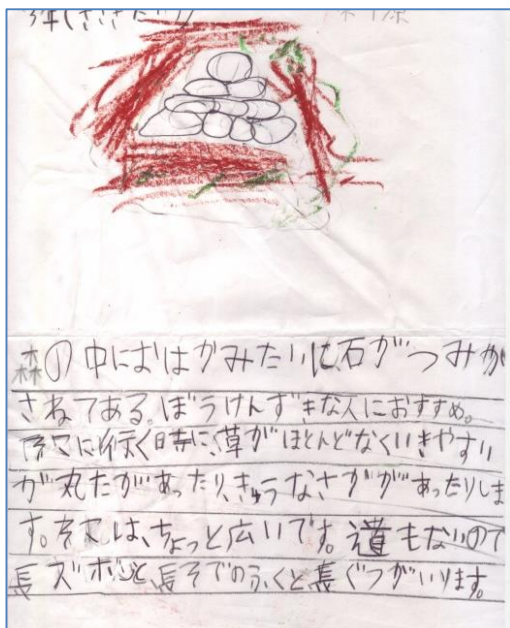 森の中におはかみたいに石がつみか
さねてある。ぼうけんずきな人におすすめ。
そこに行く時に、草がほとんどなくいきやすい
が丸たがあったり、きゅうなさががあったりしま
す。そこは、ちょっと広いです。道もないので
長ズボンと長そでのふくと長ぐつがいります。